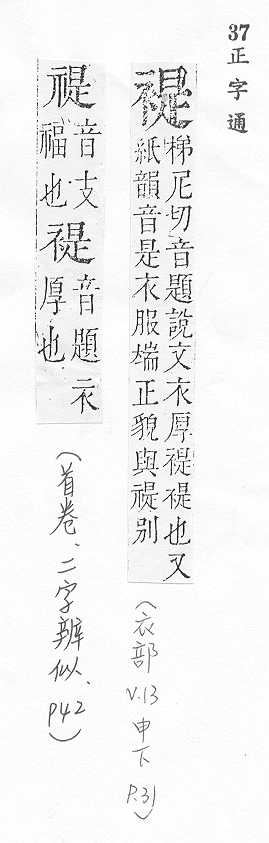 37正字通
褆
梯尼切音題說文衣厚褆褆也又
紙韻音是衣服端正貌與禔別
(衣部 V.13 申下 P.31)
禔
音支
福也
褆
音題衣
厚也
(首卷、二字辨似、P42)